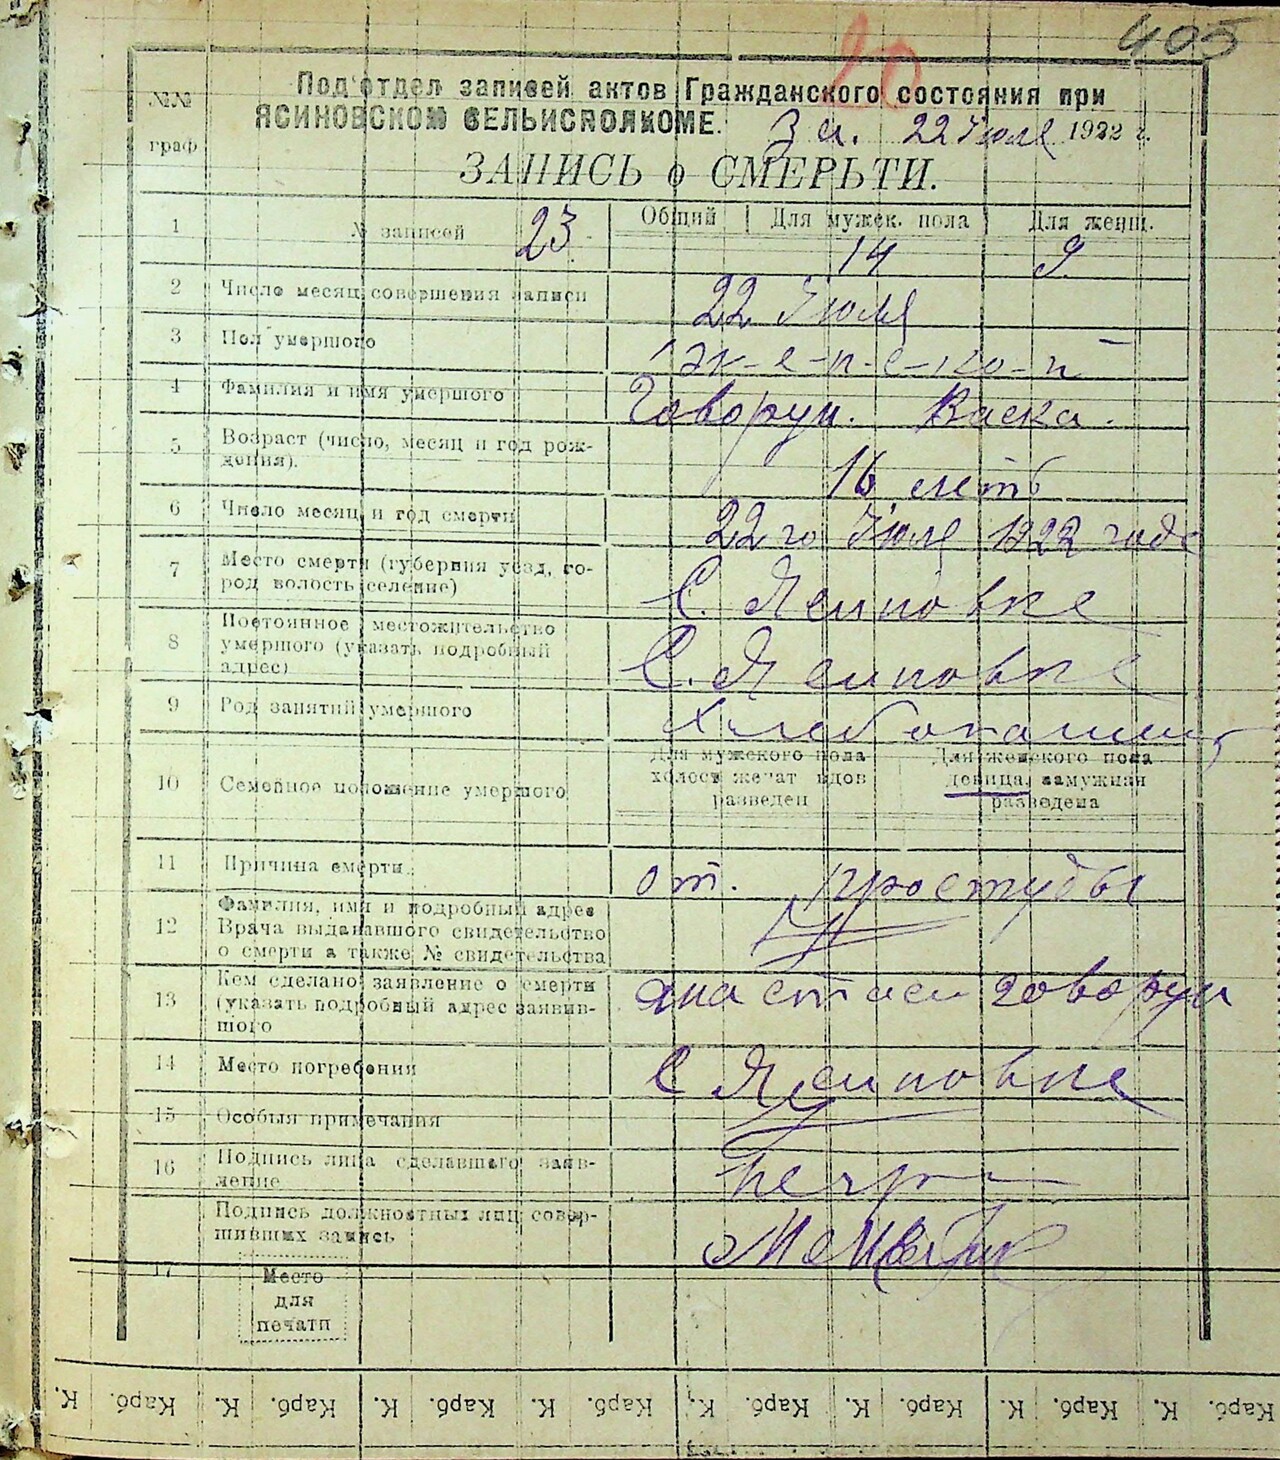 405
20
№№ граф
Под'отдел записей актов Гражданского состояния при
ЯСИНОВСКОМ СЕЛЬИСПОЛКОМЕ.
За. 22 Июля 1922 г.
ЗАПИСЬ о СМЕРЬТИ.
1 № записей 23 Общий Для мужек. пола Для женщ.
14 9
2 Число месяц совершения записи 22 Июля
3 Пол умершого ж-е-н-с-ко-й
4 Фамилия и имя умершого Говорун. Васка.
5 Возраст (число, месяц и год рож-
дения). 16 летъ
6 Число месяц и год смерти 22 го Июля 1922 года
7 Место смерти (губерния уезд, го-
род волость селение) С. Ясиновке
8 Постоянное местожительство
умершого (указать подробный
адрес) С. Ясиновке
9 Род занятий умершого Хлебопашец
10 Семейное положение умершого
Для мужского пола
холост женат вдов
разведен
Для женского пола
девица, замужная
разведена
11 Причина смерти. от. простуды
12 Фамилия, имя и подробный адрес
Врача выдававшого свидетельство
о смерти а также № свидетельства
13 Кем сделано заявление о смерти
(указать подробный адрес заявив-
шого Анастаси Говорун
14 Место погребения С Ясиновке
15 Особыя примечания
16 Подпись лица сделавшего заяв-
ление
Подпись должностных лиц совер-
шивших запись
17
Место
для
печати
К. Карб. К. Карб. К. Карб. К. Карб. К. Карб. К. Карб. К. Карб. К. Карб.